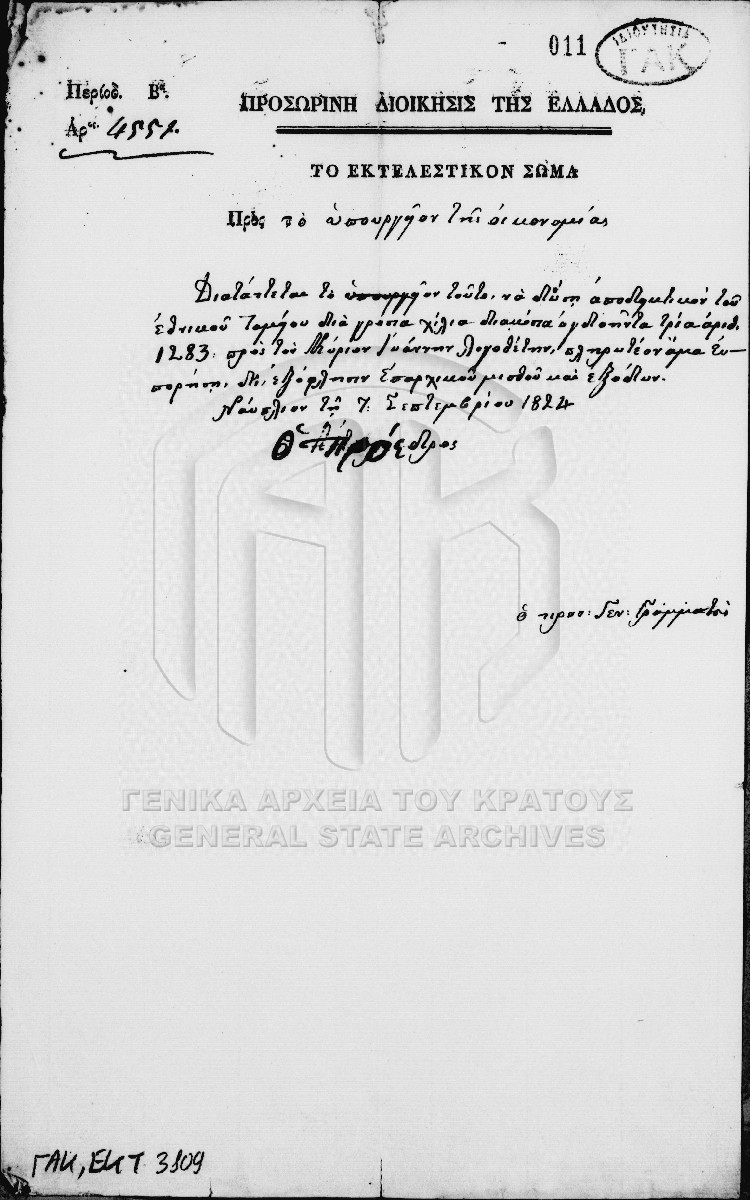 011
ΙΔΙΟΚΤΗΣΙΑ
ΓΑΚ
Περίοδ. Βα.
ΠΡΟΣΩΡΙΝΗ ΔΙΟΙΚΗΣΙΣ ΤΗΣ ΕΛΛΑΔΟΣ,
Αρ. 4551.
ΤΟ ΕΚΤΕΛΕΣΤΙΚΟΝ ΣΩΜΑ
Πρὸς τὸ ὑπουργῆον τῆς οἰκονομίας
Διατάττεται τὸ ὑπουργῆον τοῦτο, νὰ δώσῃ ἀποδεικτικὸν τοῦ
ἐθνικοῦ ταμείου διὰ γρόσια χίλια διακόσια ὀγδοῆντα τρία ἀριθ.
1283: πρὸς τὸν Κύριον Ἰωάννην Λογοθέτην, πληρωτέον ἅμα εὐ-
πορήσῃ, δι, ἐξόφλησιν ἐπαρχικοῦ μισθοῦ καὶ ἐξόδων.
Ναύπλιον τῇ 7: Σεπτεμβρίου 1824
Ὁ Πρόεδρος
ὁ προσ: Γεν: Γραμματεὺς
ΓΕΝΙΚΑ ΑΡΧΕΙΑ ΤΟΥ ΚΡΑΤΟΥΣ
GENERAL STATE ARCHIVES
ΓΑΚ, ΕΚΤ 3109